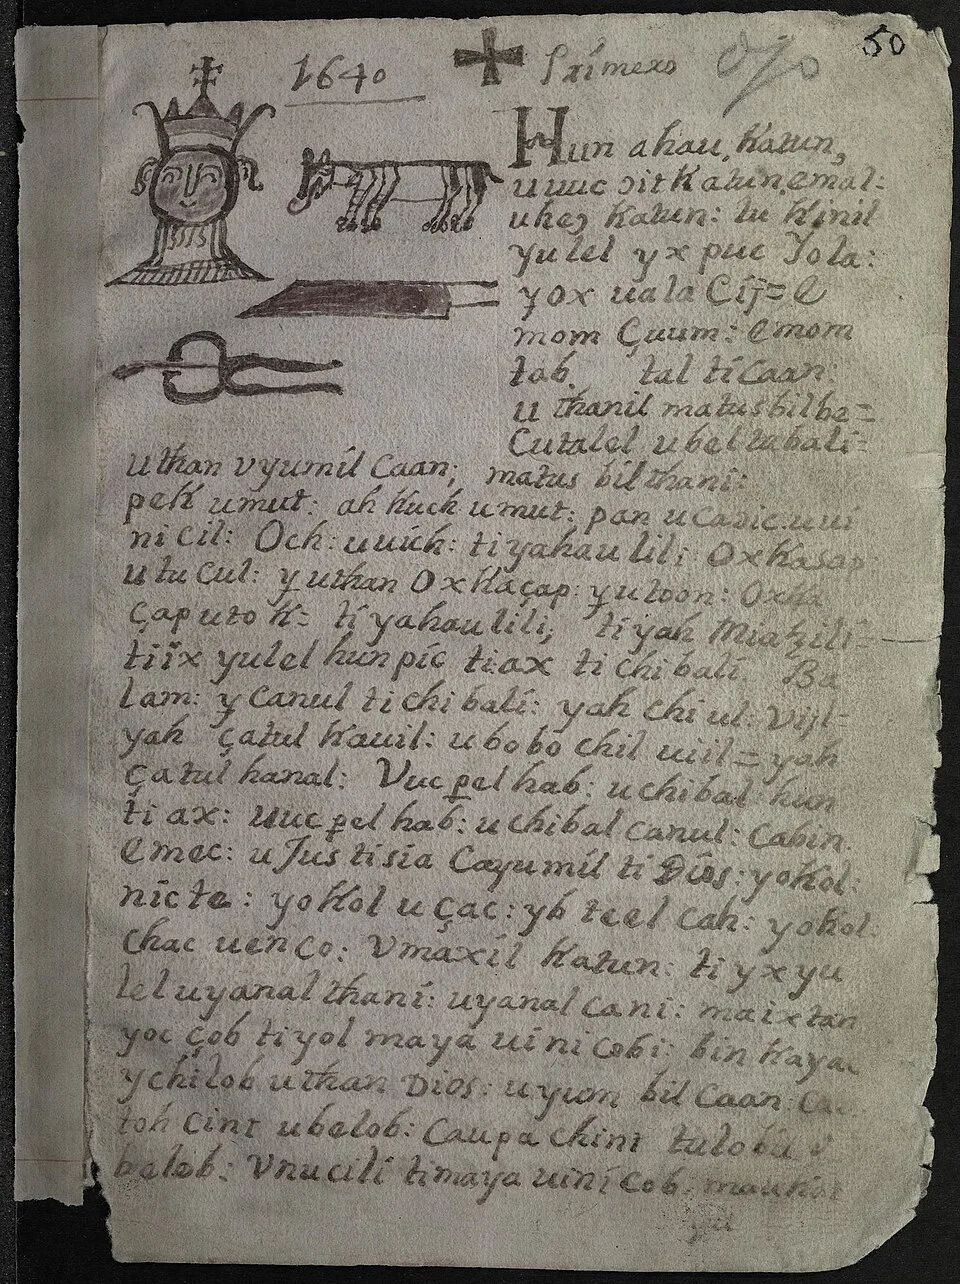 1640
Primero
50
Hun ahau, Katun,
u uuc ɔit Katun, emal:
u heɔ Katun: tu Kinil
yulel yx puc Yola:
y ox uala Ciȷ̈ = e
mom Çuum: emom
tab. tal ti Caan:
u thanil matusbilbe=
Cutalel ubel tubali=
uthan vyumil Caan; matus bil thani:
peK umut: ah Kuch umut: pan ucaɔic uui
ni cil: Och: uuich: ti yahau lil; Ox Kasap
utucul: y uthan Ox Kaçap: yutoon: OxKa
Çap uto K: ti yahau lili; ti yah
tiix yulel hun pic ti: ax ti chi bali: Ba
lam: y canul ti chi bali: yah chi ul: Vijl=
yah çatul Kauil: u bobo chil uiil = yah
Çatul hanal: Vuc pel hab: uchibal hun
ti ax: uuc pel hab: uchibal canul: Cabin
emec: uJus tisia Cayumil ti Dios: yoKol:
nicte: yoKol u çac: yb teel cah: yoKol:
chac uen co: Vmaxil Katun: ti yx yu
lel uyanal thani: uyanal cani: maixtan
yoc çob ti yol maya ui ni cobi: bin Kaya
ychilob uthan Dios: uyum bil Caan:
toh cint ubelob: Caupa chint
belob: Vnucili timaya uini cob: